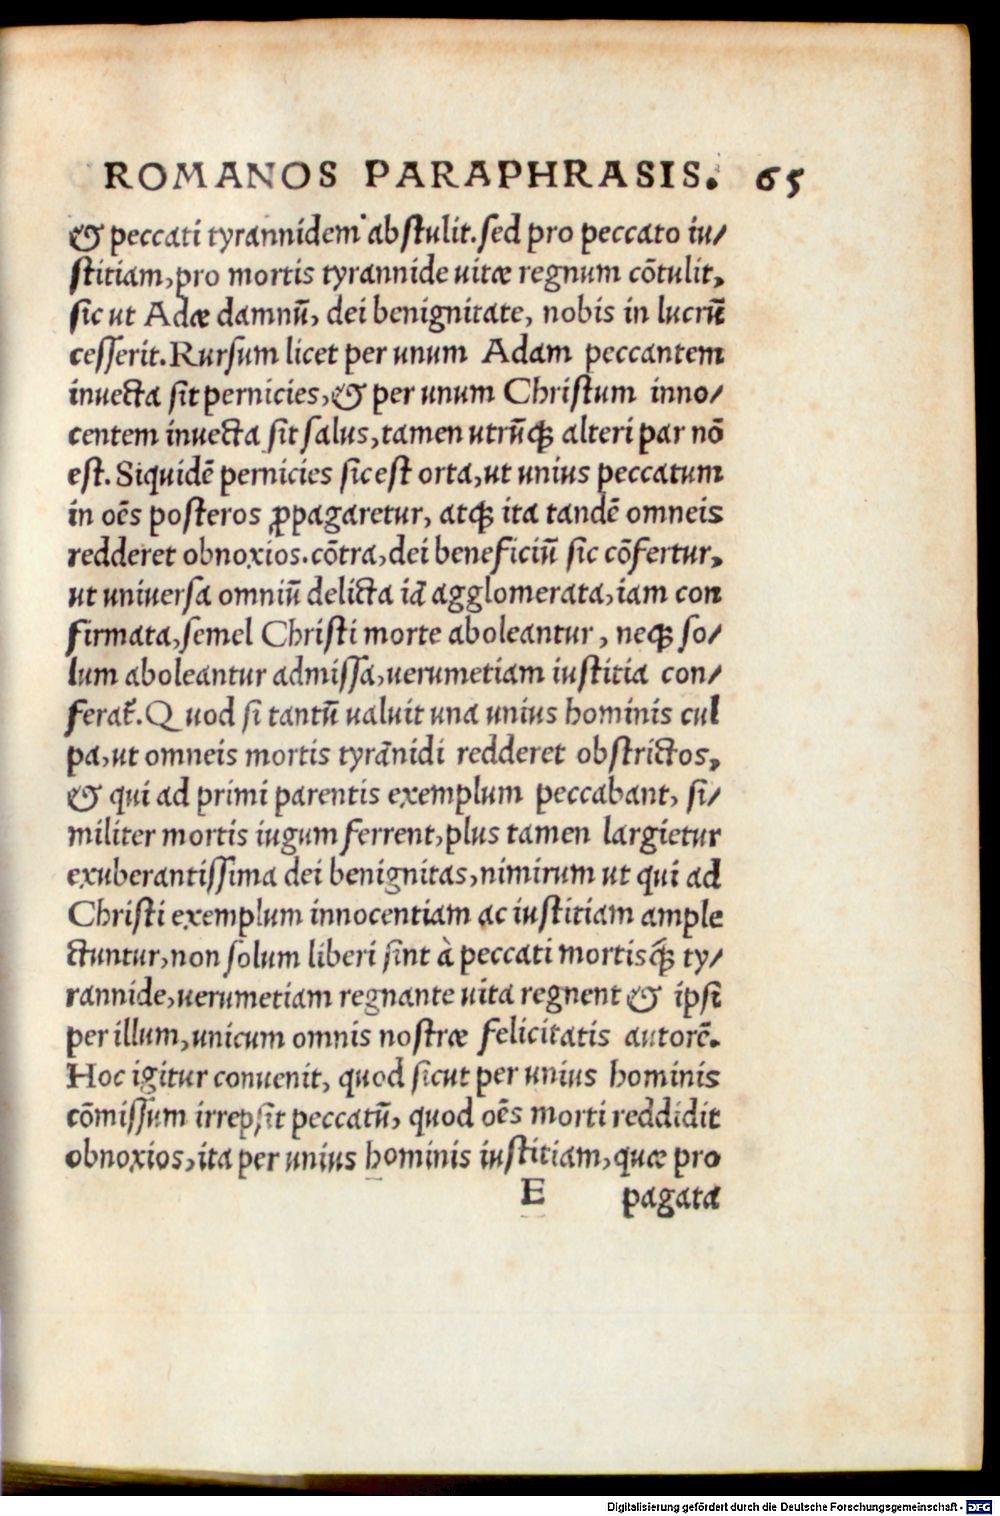 ROMANOS PARAPHRASIS. 65
& peccati tyrannidem abstulit. sed pro peccato iu/
stitiam, pro mortis tyrannide uitæ regnum cõtulit,
sic ut Adæ damnũ, dei benignitate, nobis in lucrũ
cesserit. Rursum licet per unum Adam peccantem
inuecta sit pernicies, & per unum Christum inno/
centem inuecta sit salus, tamen utrũq; alteri par nõ
est. Siquidẽ pernicies sic est orta, ut unius peccatum
in oẽs posteros ꝓpagaretur, atq; ita tandẽ omneis
redderet obnoxios. cõtra, dei beneficiũ sic cõfertur,
ut uniuersa omniũ delicta iã agglomerata, iam con
firmata, semel Christi morte aboleantur, neq; so/
lum aboleantur admissa, uerumetiam iustitia con/
ferat᷑. Quod si tantũ ualuit una unius hominis cul
pa, ut omneis mortis tyrãnidi redderet obstrictos,
& qui ad primi parentis exemplum peccabant, si/
militer mortis iugum ferrent, plus tamen largietur
exuberantissima dei benignitas, nimirum ut qui ad
Christi exemplum innocentiam ac iustitiam ample
ctuntur, non solum liberi sint à peccati mortisq́; ty/
rannide, uerumetiam regnante uita regnent & ipsi
per illum, unicum omnis nostræ felicitatis autorẽ.
Hoc igitur conuenit, quod sicut per unius hominis
cõmissum irrepsit peccatũ, quod oẽs morti reddidit
obnoxios, ita per unius hominis iustitiam, quæ pro
E pagata
Digitalisierung gefördert durch die Deutsche Forschungsgemeinschaft - DFG